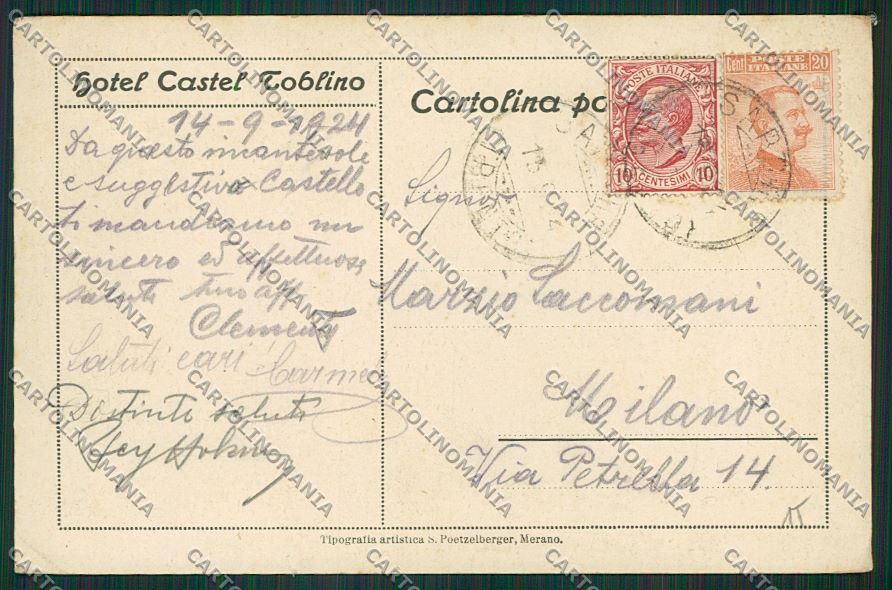 Hotel Castel Toblino
14-9-1924
Da questo incantevole
e suggestivo Castello
ti mandiamo un
sincero ed affettuoso
saluti tuo aff
Clemente
Saluti cari!
Distinti saluti
Cartolina po
POSTE ITALIANE
10 CENTESIMI 10
Cent. POSTE ITALIANE 20
Signor
Marzio Saccomani
Milano
Via Petrella 14.
Tipografia artistica S. Poetzelberger, Merano.
CARTOLINOMANIA